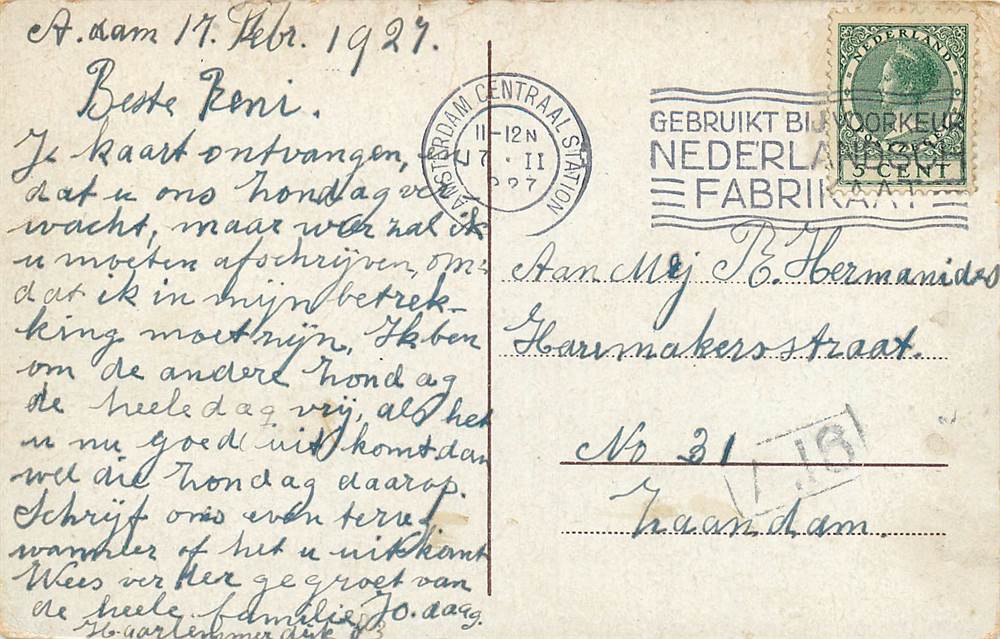 A.dam 17. Febr. 1927.
Beste Reni.
Je kaart ontvangen, en
dat u ons Zondag ver
wacht, maar weer zal ik
u moeten afschrijven, om-
dat ik in mijn betrek-
king moet zijn, Ik ben
om de andere Zondag
de heele dag vrij, als het
u nu goed uit komt dan
wel die Zondag daarop.
Schrijf ons even terug
wanneer of het u uitkomt
Wees verder gegroet van
de heele familie, Jo. daag.
Haarlemmerdijk 83
AMSTERDAM CENTRAAL STATION
11-12N
17.II
1927
GEBRUIKT BIJ VOORKEUR
NEDERLANDSCH
FABRIKAAT
NEDERLAND
POSTZEGEL
5 CENT
Aan Mej R. Hermanides
Haremakersstraat.
No 31
Zaandam.